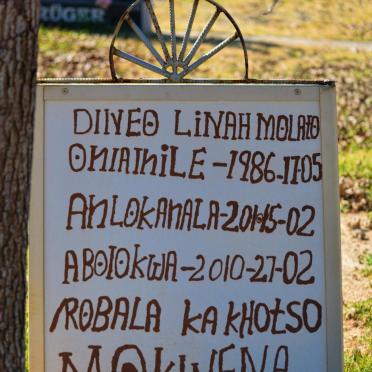 RÜGER
DINEO LINAH MOLATO
ONTATHILE - 1986-11-05
ANLOKANALA - 2015-02
ABOTOKWA - 2010-27-02
ROBALA KA KHOTSO
MOKWENA